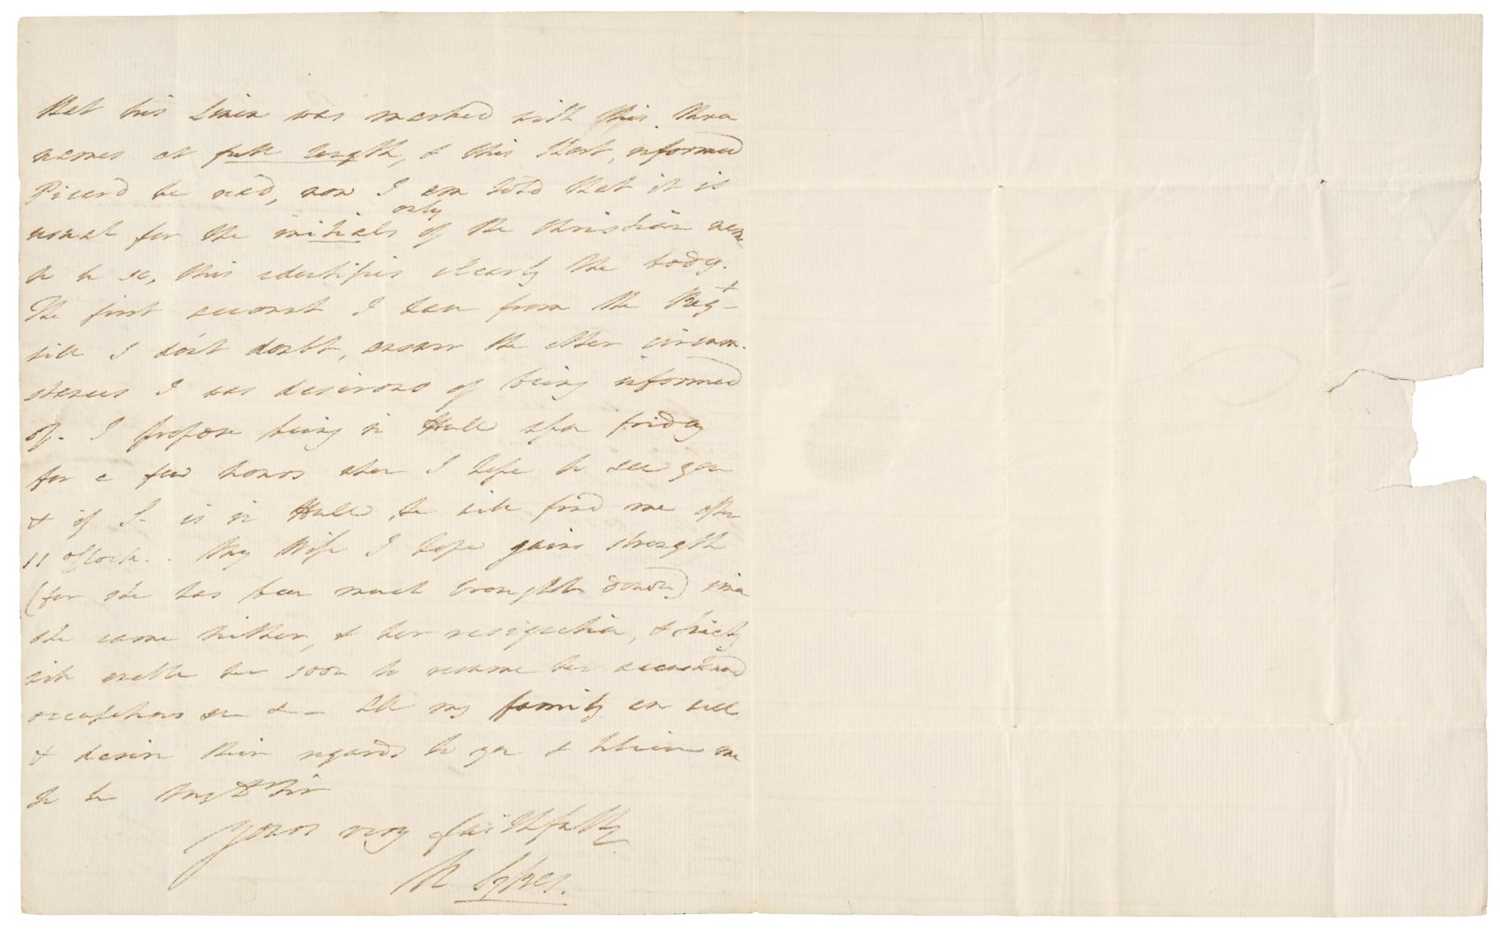 that his Linen was marked with this three
names at full length, & this Hart, informed
Picard he had, now I am told that it is
usual for the initials only of the Christian name
to be so, this identifies clearly the body.
The first account I saw from the Regt
will I don't doubt, answer the other circum-
stances I was desirous of being informed
of. I propose being in Hull upon friday
for a few hours when I hope to see you
& if J– is in Hull he will find me after
11 oClock. . My Wife I hope gains strength
(for she has been much brought down) since
she came hither, & her resignation, &
will enable her soon to resume her accustomed
occupations &c &c – All my family are well
& desire their regards to you & believe me
to be My Dr Sir
Yours very faithfully
R Sykes.